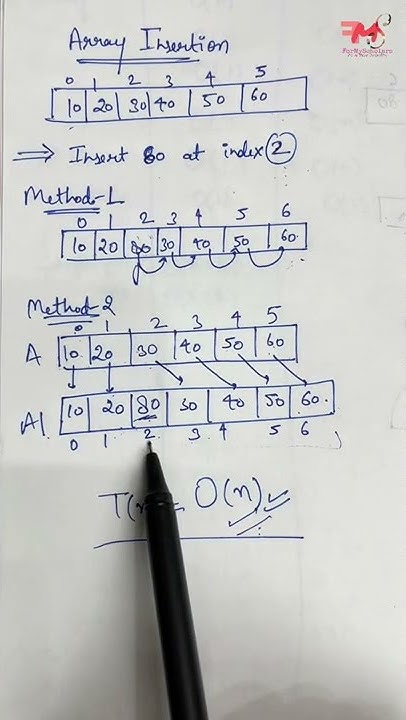 FM
ForMyScholars
Array Insertion
0 1 2 3 4 5
10 20 30 40 50 60
⇒ Insert 80 at index 2
Method-1
0 1 2 3 4 5 6
10 20 80 30 40 50 60
Method-2
0 1 2 3 4 5
A 10 20 30 40 50 60
A1 10 20 80 30 40 50 60
0 1 2 3 4 5 6
T(n) = O(n)